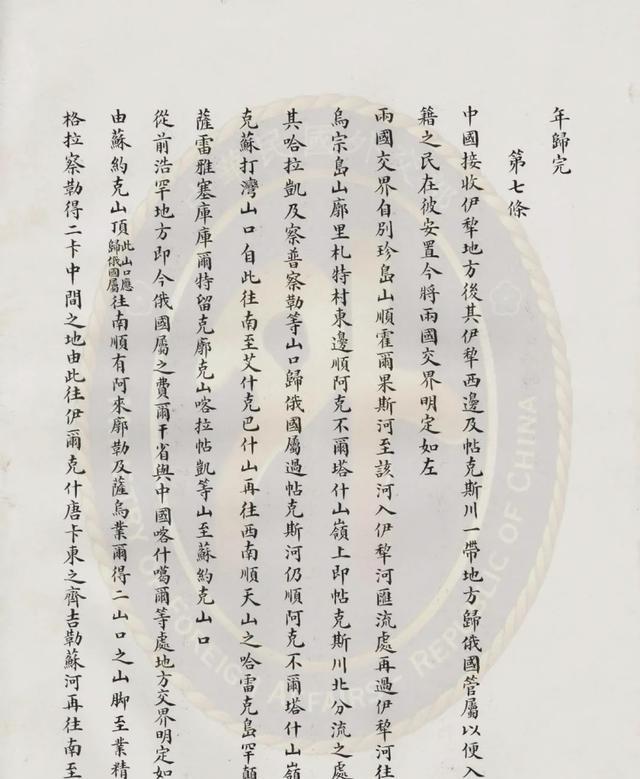 年歸完
第七條
中國接收伊犂地方後其伊犂西邊及帖克斯川一帶地方歸俄國管屬以便入
籍之民在彼安置今將兩國交界明定如左
兩國交界自別珍島山順霍爾果斯河至該河入伊犂河匯流處再過伊犂河往
烏宗島山廓里札特村東邊順阿克不爾塔什山嶺上即帖克斯川北分流之處
其哈拉凱及察普察勒等山口歸俄國屬過帖克斯河仍順阿克不爾塔什山嶺
克蘇打灣山口自此往南至艾什克巴什山再往西南順天山之哈雷克島罕顛
薩雷雅塞庫庫爾特留克廓克山喀拉帖凱等山至蘇約克山口
從前浩罕地方即今俄國屬之費爾干省與中國喀什噶爾等處地方交界明定如
由蘇約克山頂此山口應歸俄國屬往南順有阿來廓勒及薩烏業爾得二山口之山脚至業精
格拉察勒得二卡中間之地由此往伊爾克什唐卡東之齊吉勒蘇河再往南至
OF FOREIGN AFFAIRS REPUBLIC OF CHINA